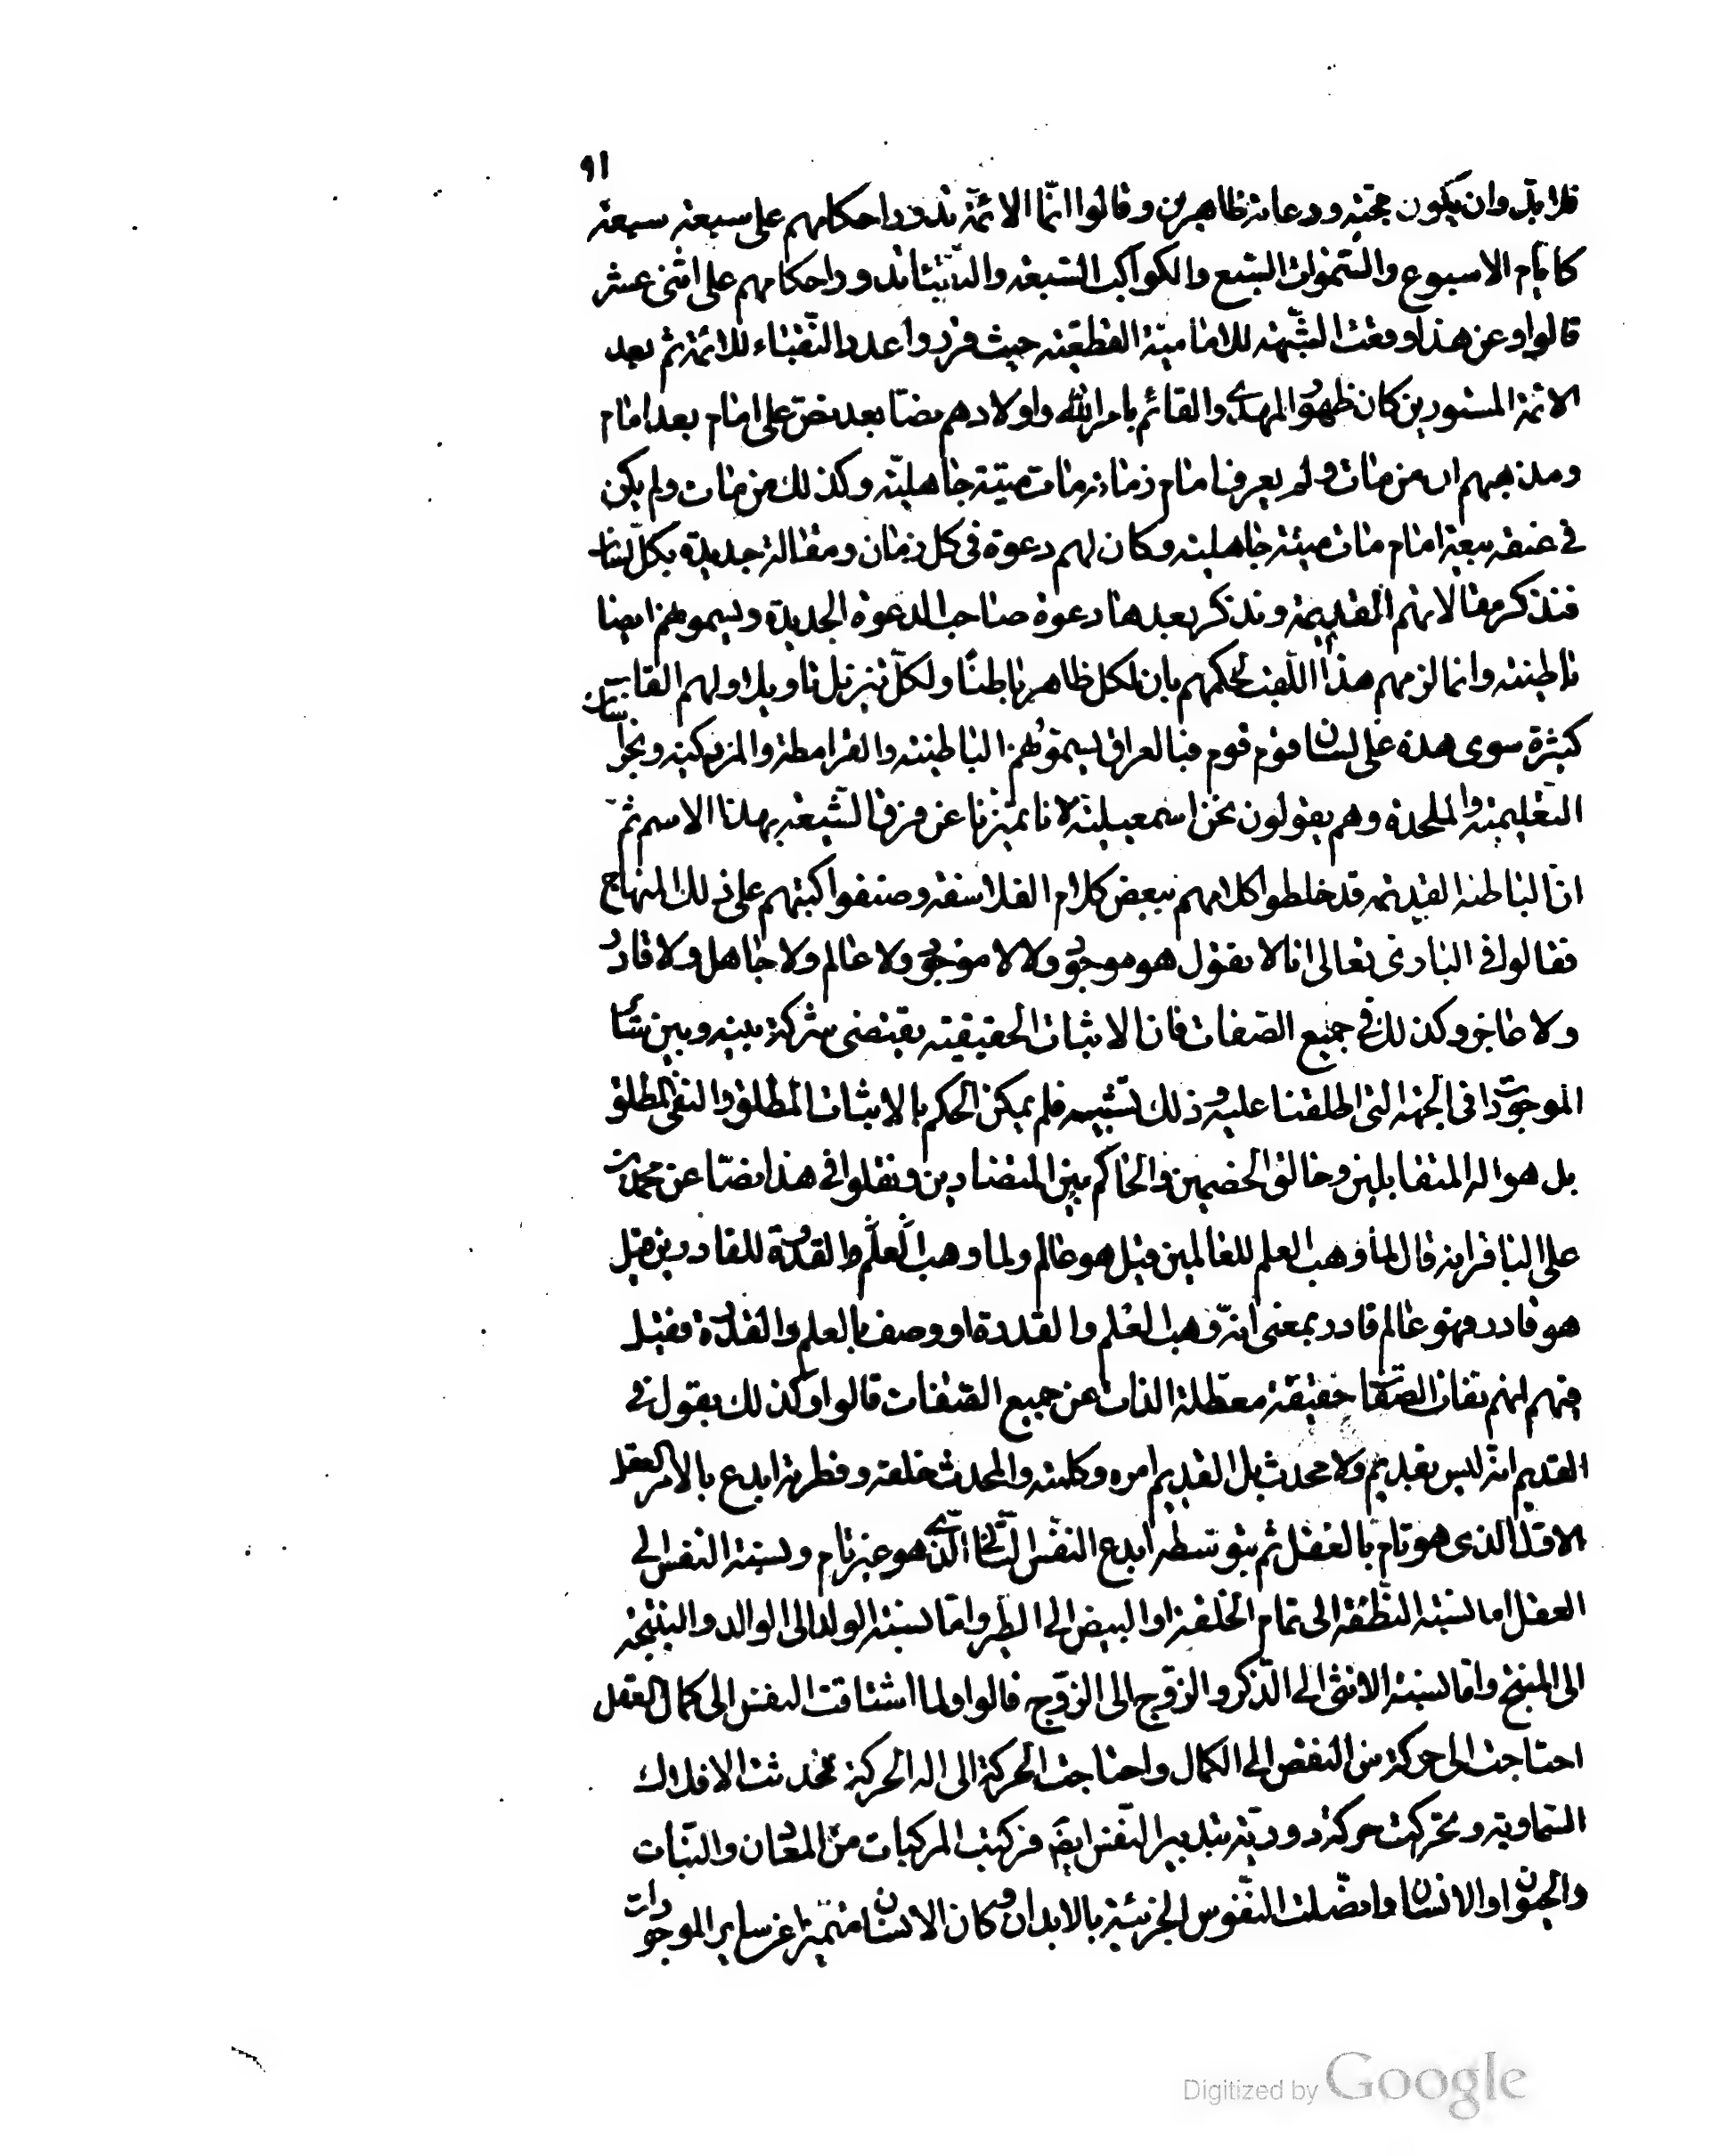 ٩١
فلا بد وان يكون حجته ودعاته ظاهرين وقالوا انما الائمة تدور احكامهم على سبعة سبعة
كايام الاسبوع والسموات السبع والكواكب السبعة والنقباء تدور احكامهم على اثنى عشر
قالوا وعن هذا وقعت الشبهة للامامية القطعية حيث قرروا عدد النقباء للائمة ثم بعد
الائمة المستورين كان ظهور المهدى والقائم بامر الله واولادهم نصا بعد نص على امام بعد امام
ومذهبهم ان من مات ولم يعرف امام زمانه مات ميتة جاهلية وكذلك من مات ولم يكن
فى عنقه بيعة امام مات ميتة جاهلية وكان لهم دعوة فى كل زمان ومقالة جديدة بكل لسان
فنذكر مقالاتهم القديمة ونذكر بعدها دعوة صاحب الدعوة الجديدة ويسموهم ايضا
باطنية وانما لزمهم هذا اللقب لحكمهم بان لكل ظاهر باطنا ولكل تنزيل تاويلا ولهم القاب
كثيرة سوى هذه على لسان قوم قوم فبالعراق يسموهم الباطنية والقرامطة والمزدكية وبخراسان
التعليمية والملحدة وهم يقولون نحن اسمعيلية لانا تميزنا عن فرق الشيعة بهذا الاسم ثم
ان الباطنة القديمة قد خلطوا كلامهم ببعض كلام الفلاسفة وصنفوا كتبهم على ذلك المنهاج
فقالوا فى البارى تعالى انا لا نقول هو موجود ولا لا موجود ولا عالم ولا جاهل ولا قادر
ولا عاجز وكذلك فى جميع الصفات فان الاثبات الحقيقية يقتضى شركة بينه وبين سائر
الموجودات فى الجهة التى اطلقنا عليه وذلك تشبيه فلم يمكن الحكم بالاثبات المطلق والنفى المطلق
بل هو اله المتقابلين وخالق الخصمين والحاكم بين المتضادين ونقلوا فى هذا نصا عن محمد بن
على الباقر انه قال لما وهب العلم للعالمين قيل هو عالم ولما وهب العلم والقدرة للقادرين قيل
هو قادر فهو عالم قادر بمعنى انه وهب العلم والقدرة او وصف بالعلم والقدرة فقيل
فيهم انهم نفاة الصفات حقيقة معطلة الذات عن جميع الصفات قالوا وكذلك يقول فى
القديم انه ليس بقديم ولا محدث بل القديم امره وكلمته والمحدث خلقه وفطرته ابدع بالامر العقل
الاول الذى هو تام بالفعل ثم بتوسطه ابدع النفس التالى الذى هو غير تام ونسبة النفس الى
العقل اما نسبة النطفة الى تمام الخلقة او البيض الى الطير واما نسبة الولد الى الوالد والنتيجة
الى المنتج واما نسبة الانثى الى الذكر والزوج الى الزوج قالوا ولما اشتاقت النفس الى كمال العقل
احتاجت الى حركة من النقص الى الكمال واحتاجت الحركة الى اله الحركة فحدثت الافلاك
السماوية وتحركت حركة دورية بتدبير النفس ايضا فركبت المركبات من المعادن والنبات
والحيوان او الانسان واتصلت النفوس الجزئية بالابدان وكان الانسان متميزا عن ساير الموجودات
Digitized by Google